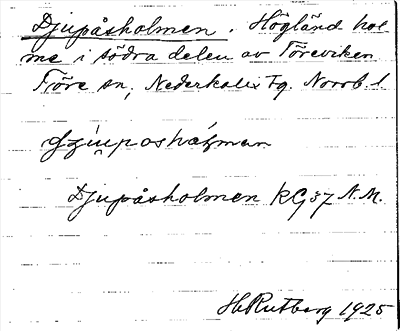 Djupåsholmen. Högländ hol
me i södra delen av Töreviken
Töre sn, Nederkalix tg. Norrb. l.
Djupåsholmen KG 37 N.M.
H Rutberg 1925